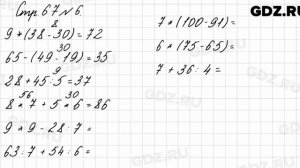 Стр. 67 № 6.
8
9 * (38 - 30) = 72
30
65 - (49 - 19) = 35
9
28 + 45 : 5 = 37
56 30
8 * 7 + 5 * 6 = 86
9 * 9 - 28 : 7 =
63 : 7 + 54 : 6 =
7 * (100 - 91) =
6 * (75 - 65) =
7 + 36 : 4 =
GDZ.RU
GDZ.RU